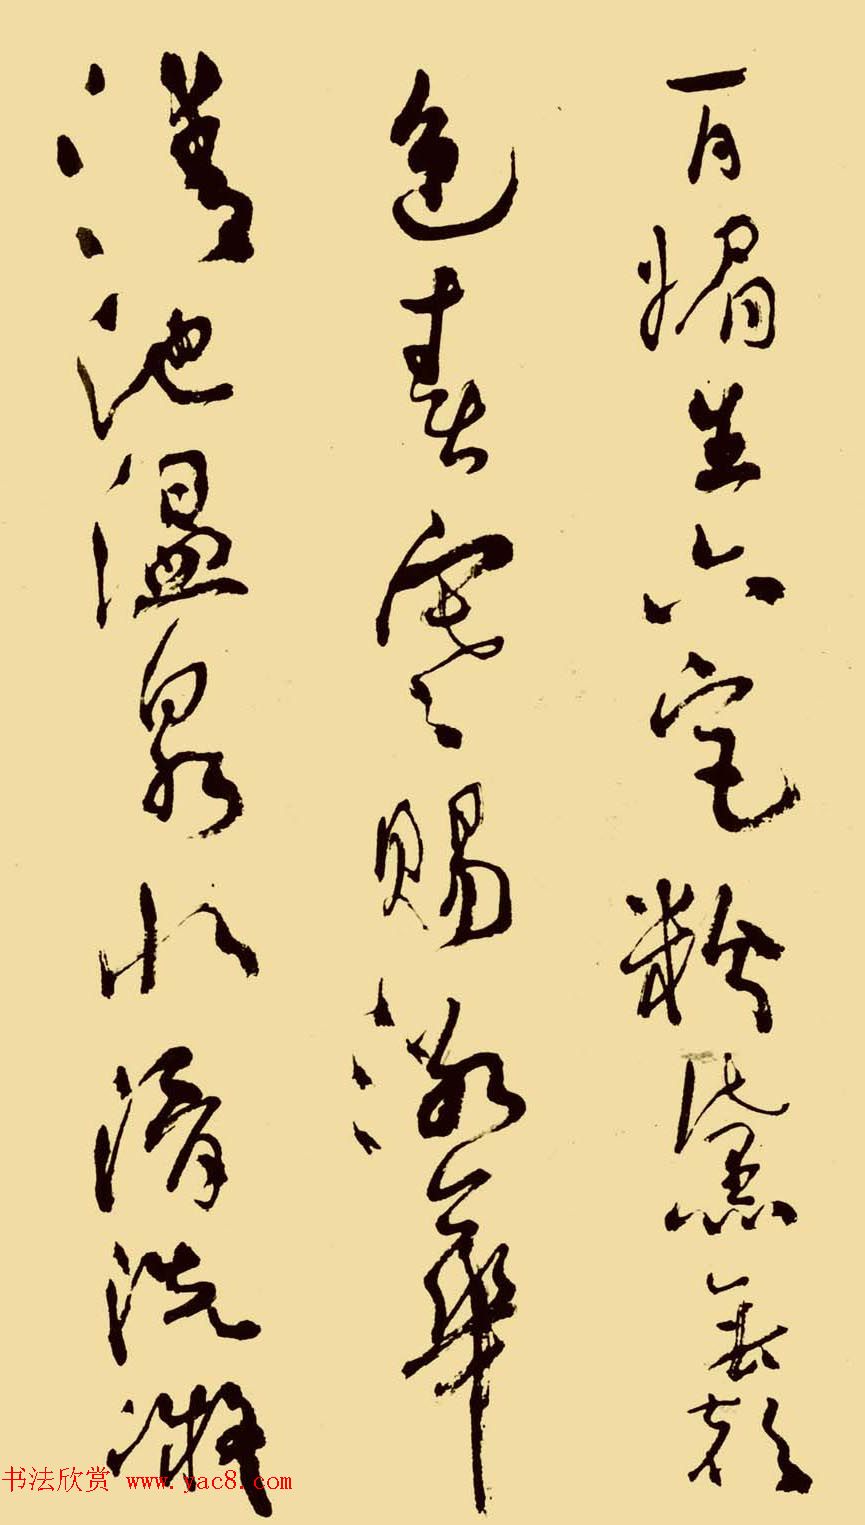 百媚生六宫粉黛無顔
色春寒賜浴華
清池温泉水滑洗凝
书法欣赏 www.yac8.com